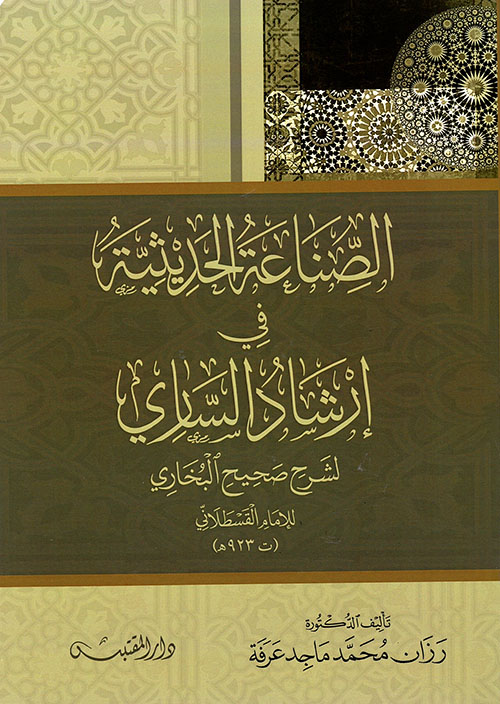 الصِّنَاعَةُ الحَدِيثِيَّةُ
فِي
إِرْشَادِ السَّارِي
لشرح صَحِيحِ البُخَارِي
للإمَامِ القَسْطَلَانِي
(ت ٩٢٣ هـ)
تَأْلِيف الدُّكْتُورَة
رَزَان مُحَمَّد مَاجِد عَرَفَة
دار المقتبس